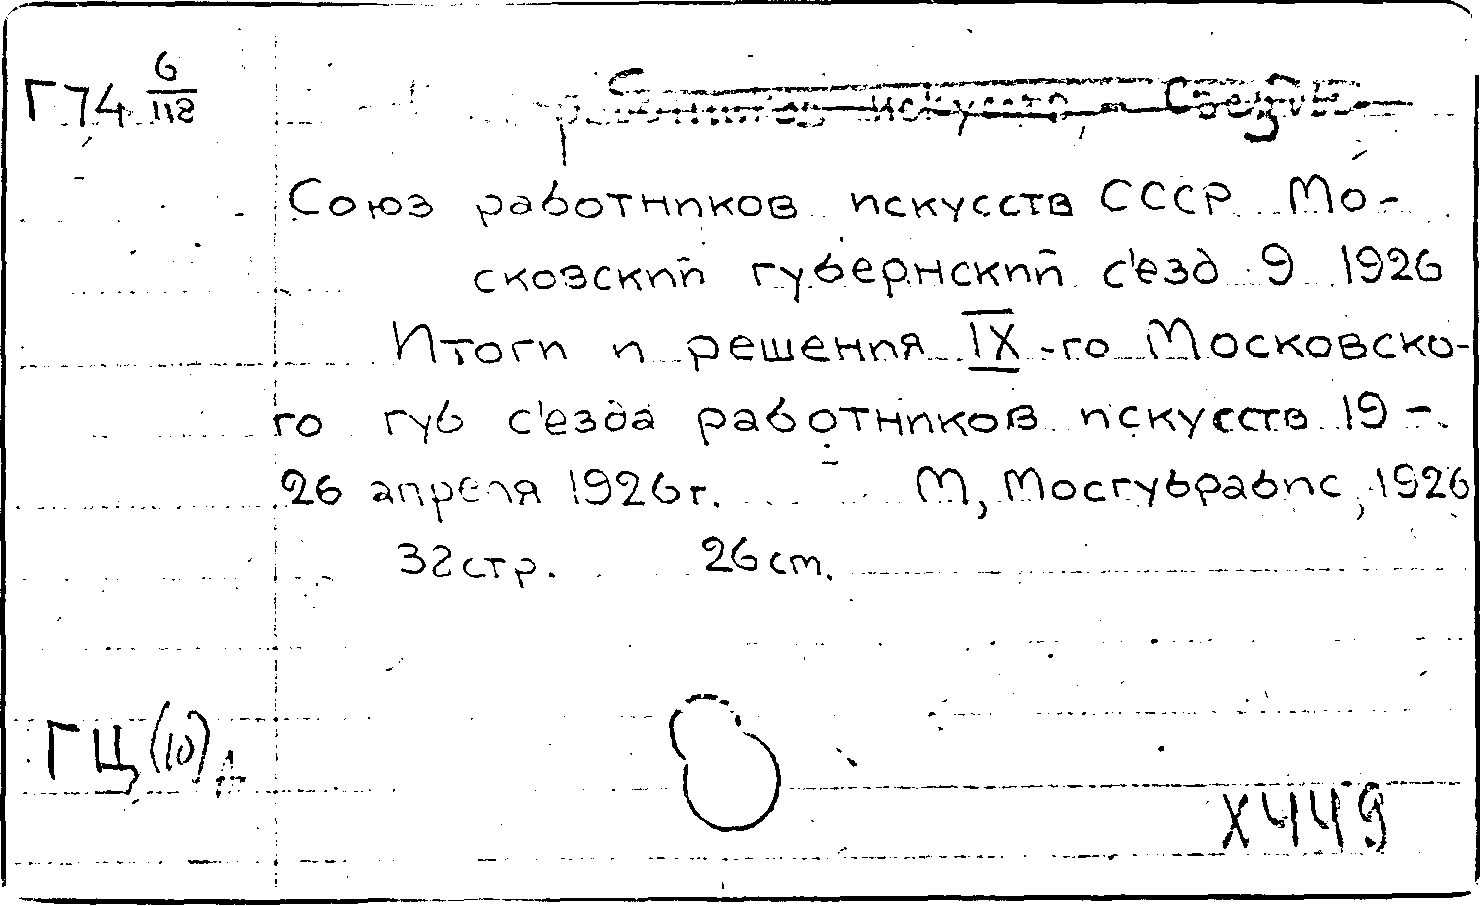 Г74 6/112
работников искусств, - Съезды
Союз работников искусств СССР Мо-
сковский губернский с'езд 9 1926
Итоги и решения IX-го Московско-
го губ с'езда работников искусств 19-
26 апреля 1926г. М, Мосгубрабис, 1926
32стр. 26cm.
ГЦ(10)
X449